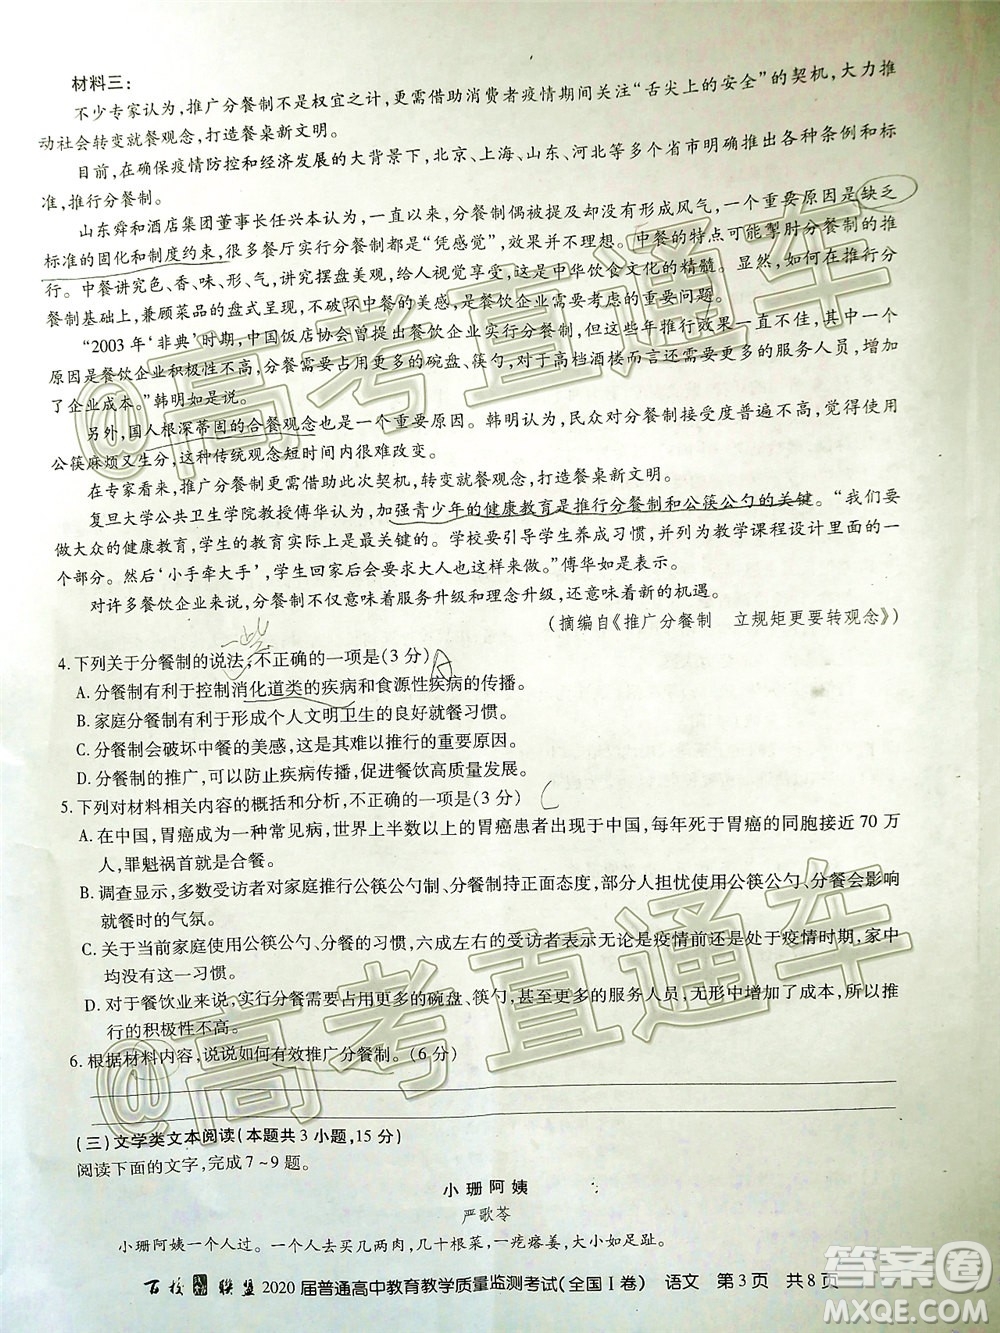 材料三:
不少专家认为,推广分餐制不是权宜之计,更需借助消费者疫情期间关注“舌尖上的安全”的契机,大力推
动社会转变就餐观念,打造餐桌新文明。
目前,在确保疫情防控和经济发展的大背景下,北京、上海、山东、河北等多个省市明确推出各种条例和标
准,推行分餐制。
山东舜和酒店集团董事长任兴本认为,一直以来,分餐制偶被提及却没有形成风气,一个重要原因是缺乏
标准的固化和制度约束,很多餐厅实行分餐制都是“凭感觉”,中餐的特点可能掣肘分餐制的推
行。中餐讲究色、香、味、形、气,讲究摆盘美观,给人视觉享受,这是中华饮食文化的精髓。因此,如何在推行分
餐制基础上,兼顾菜品的盘式呈现,不破坏中餐的美感,是餐饮企业需要考虑的重要问题。
“2003年‘非典’时期,中国饭店协会曾提出餐饮企业实行分餐制,但多年来推行效果一直不佳,主要
原因是餐饮企业积极性不高,分餐需要占用更多的碗盘、筷勺,对于高档酒楼而言还需要更多的服务人员,增加
了企业成本。”韩明如是说。
另外,国人根深蒂固的合餐观念也是一个重要原因。韩明认为,民众对分餐制接受度普遍不高,觉得使用
公筷麻烦又生分,这种传统观念短时间内很难改变。
在专家看来,推广分餐制更需借助此次契机,转变就餐观念,打造餐桌新文明。
复旦大学公共卫生学院教授傅华认为,加强青少年的健康教育是推行分餐制和公筷公勺的关键。“我们要
做大众的健康教育,学生的教育实际上是最关键的。学校要引导学生养成习惯,并列为教学课程设计里面的一
个部分。然后‘小手牵大手’,学生回家后会要求大人也这样做。”傅华如是表示。
对许多餐饮企业来说,分餐制不仅意味着服务升级和理念升级,还意味着创新的机遇。
(摘编自《推广分餐制 立规矩更要转观念》)
一些
4. 下列关于分餐制的说法,不正确的一项是(3分) A
A. 分餐制有利于控制消化道类的疾病和食源性疾病的传播。
B. 家庭分餐制有利于形成个人文明卫生的良好就餐习惯。
C. 分餐制会破坏中餐的美感,这是其难以推行的重要原因。
D. 分餐制的推广,可以防止疾病传播,促进餐饮高质量发展。
5. 下列对材料相关内容的概括和分析,不正确的一项是(3分) C
A. 在中国,胃癌成为一种常见病,世界上半数以上的胃癌患者出现于中国,每年死于胃癌的同胞接近70万
人,罪魁祸首就是合餐。
B. 调查显示,多数受访者对家庭推行公筷公勺制、分餐制持正面态度,部分人担忧使用公筷公勺、分餐会影响
就餐时的气氛。
C. 关于当前家庭使用公筷公勺、分餐的习惯,六成左右的受访者表示无论是疫情前还是处于疫情时期,家中
均没有这一习惯。
D. 对于餐饮业来说,实行分餐需要占用更多的碗盘、筷勺,甚至更多的服务人员,无形中增加了成本,所以推
行的积极性不高。
6. 根据材料内容,说说如何有效推广分餐制。(6分)
(三)文学类文本阅读(本题共3小题,15分)
阅读下面的文字,完成7~9题。
小珊阿姨
严歌苓
小珊阿姨一个人过。一个人去买几两肉,几十根菜,一疙瘩姜,大小如足趾。
百校联盟 2020届普通高中教育教学质量监测考试(全国Ⅰ卷) 语文 第3页 共8页
@高考直通车
@高考直通车
答案圈
MXQE.COM